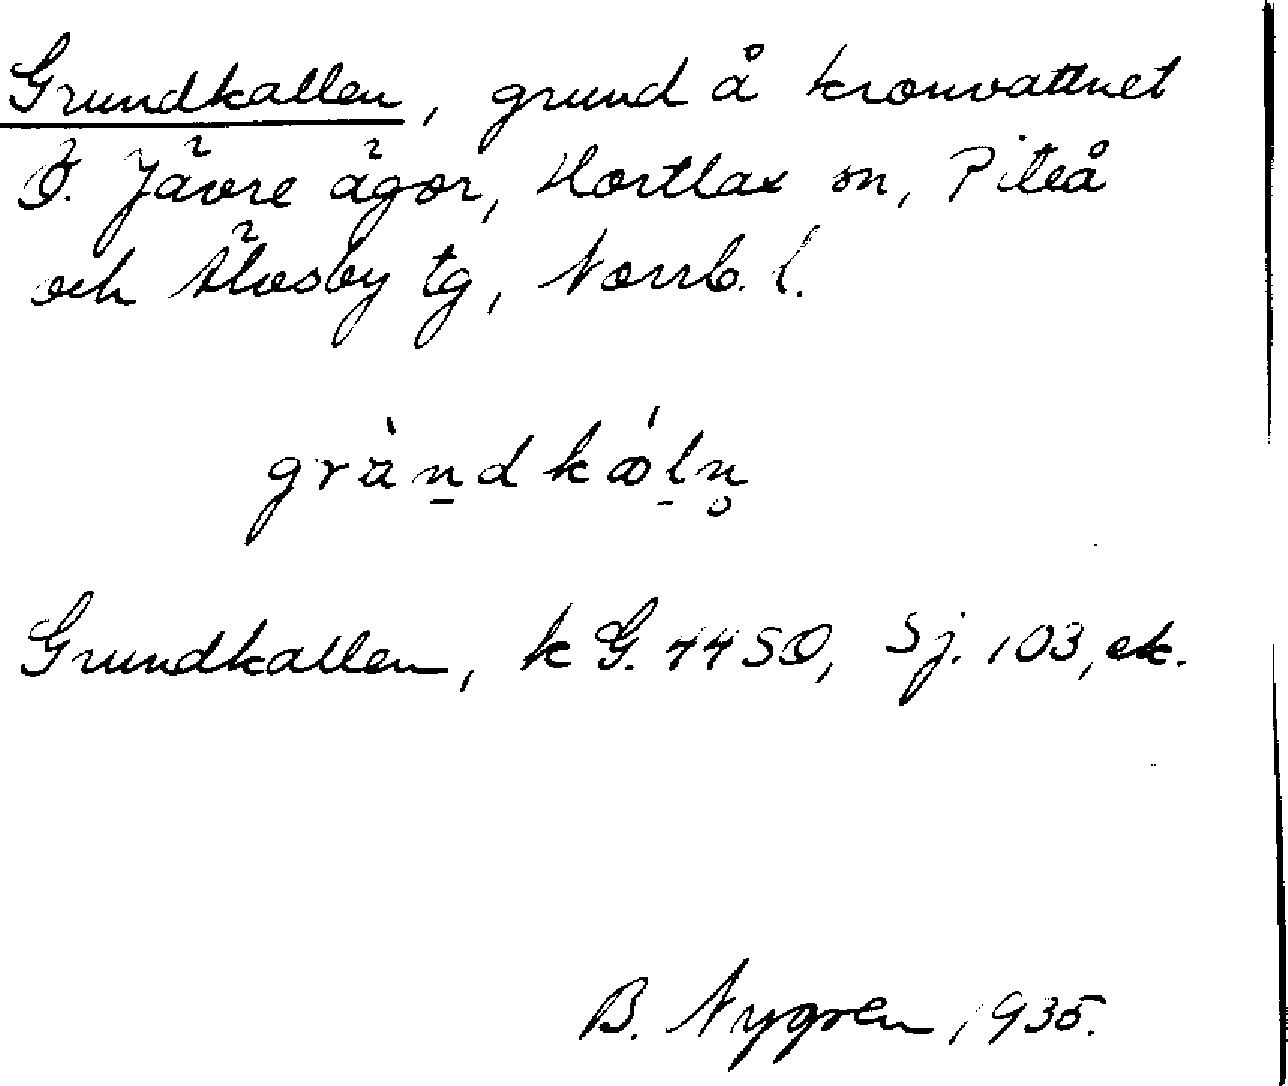 Grundkallen, grund å kronvattnet
Ö. Jävre ägor, Hortlax sn, Piteå
och Älvsby tg, Norrb. l.
gràṉdkǻḻn̥
Grundkallen, k G. 4450, Sj. 103, ek.
B. Nygren, 1935.